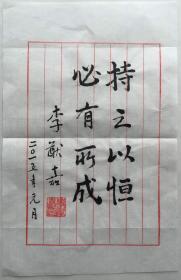 持之以恒
必有所成
李猷嘉
二〇一五年元月